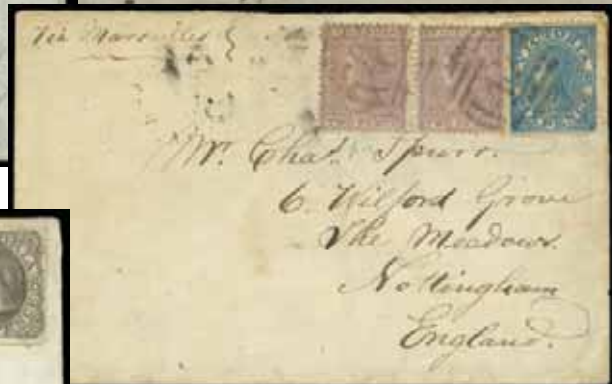 Via Marseilles
VICTORIA
Mr. Chas. Spurr.
6. Wilford Grove
The Meadows.
Nottingham
England.